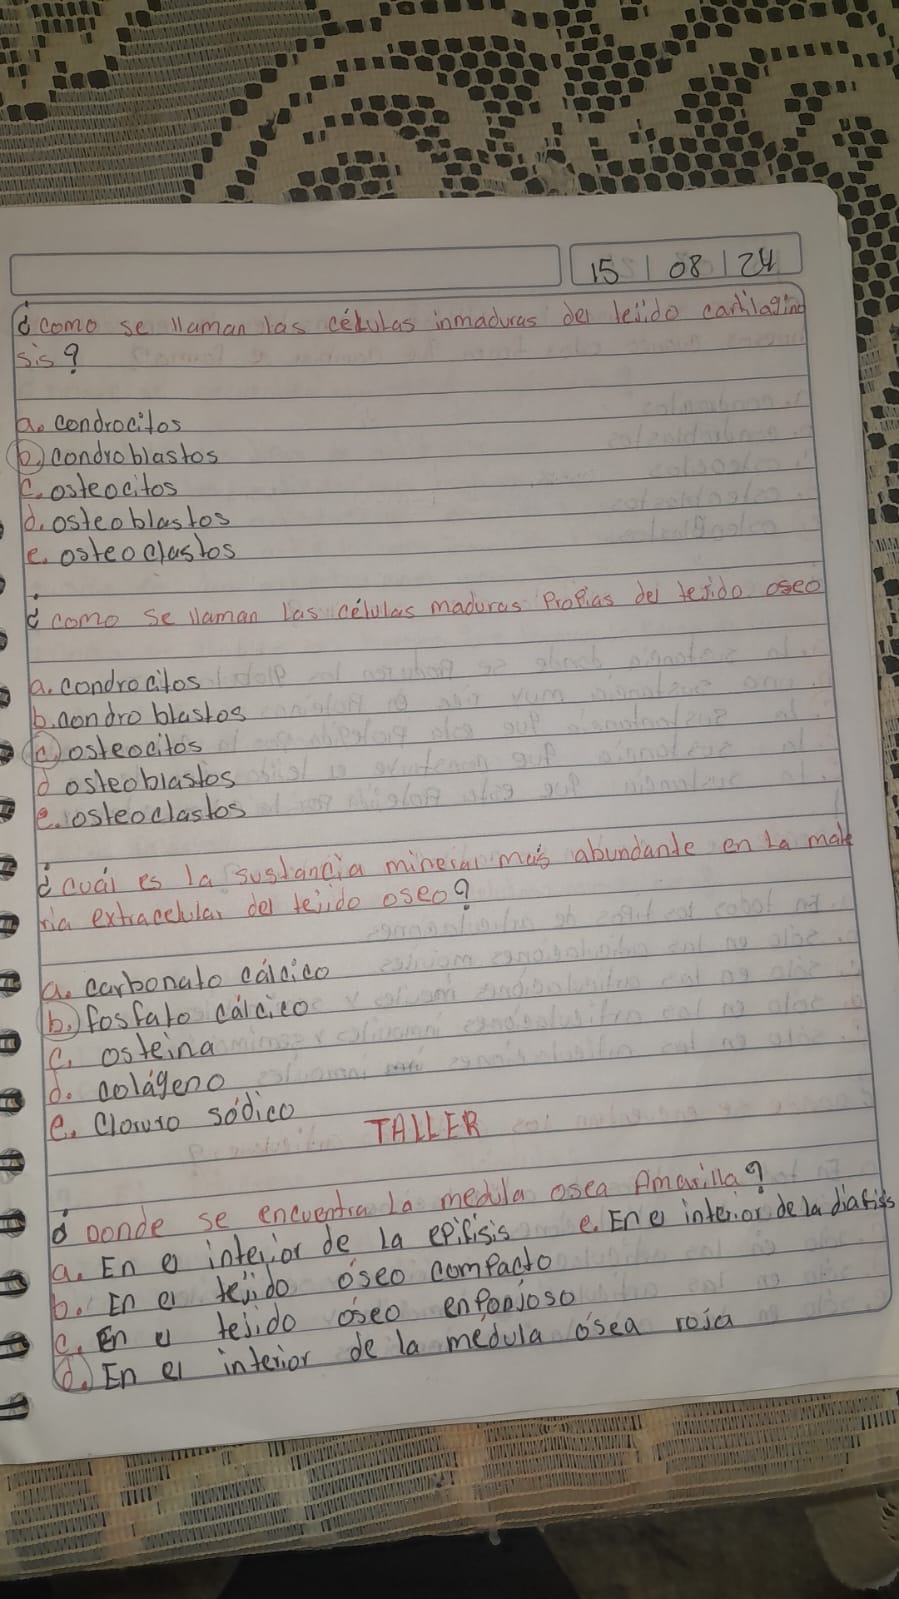 15 | 08 | 24
¿como se llaman las células inmaduras del tejido cartilagino
sis?
a. condrocitos
b. condroblastos
c. osteocitos
d. osteoblastos
e. osteoclastos
¿como se llaman las células maduras propias del tejido oseo
a. condrocitos
b. condroblastos
c. osteocitos
d osteoblastos
e. osteoclastos
¿cuál es la sustancia mineral más abundante en la mate
ria extracelular del tejido oseo?
a. carbonato cálcico
b. fosfato cálcico
c. osteina
d. colágeno
e. Cloruro sódico
TALLER
¿Donde se encuentra la medula osea Amarilla?
a. En el interior de la epifisis e. En el interior de la diafisis
b. En el tejido óseo compacto
c. En el tejido óseo enponjoso
d. En el interior de la médula ósea roja